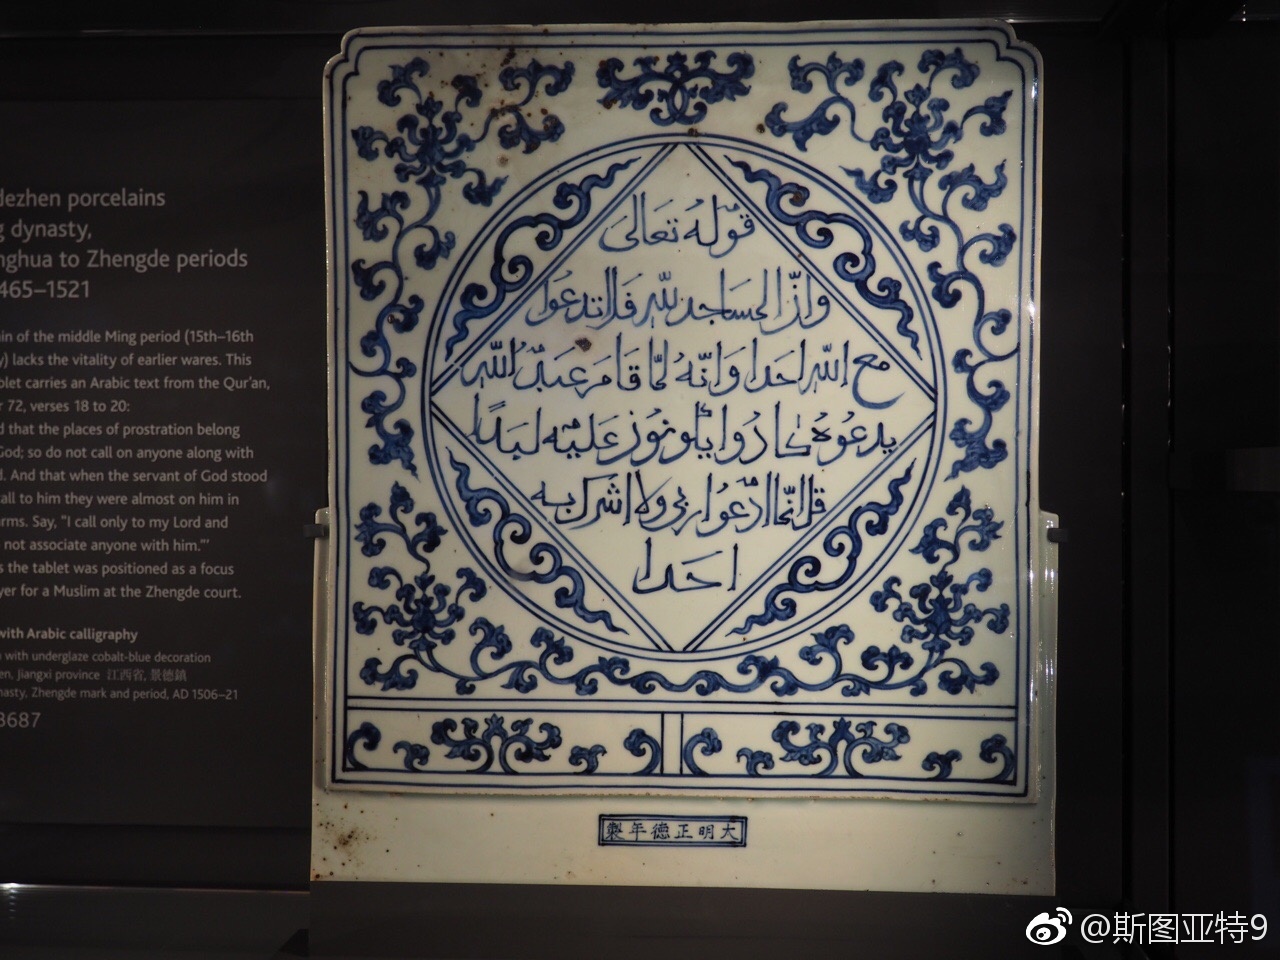 dezhen porcelains
g dynasty,
nghua to Zhengde periods
465–1521
in of the middle Ming period (15th–16th
y) lacks the vitality of earlier wares. This
blet carries an Arabic text from the Qur'an,
r 72, verses 18 to 20:
d that the places of prostration belong
God; so do not call on anyone along with
d. And that when the servant of God stood
all to him they were almost on him in
rms. Say, "I call only to my Lord and
not associate anyone with him."'
s the tablet was positioned as a focus
yer for a Muslim at the Zhengde court.
with Arabic calligraphy
n with underglaze cobalt-blue decoration
en, Jiangxi province 江西省, 景德鎮
nasty, Zhengde mark and period, AD 1506–21
3687
قوله تعالى
وان المساجد لله فلا تدعوا
مع الله احدا وانه لما قام عبد الله
يدعوه كادوا يكونون عليه لبدا
قل انما ادعوا ربي ولا اشرك به
احدا
大明正德年製
@斯图亚特9